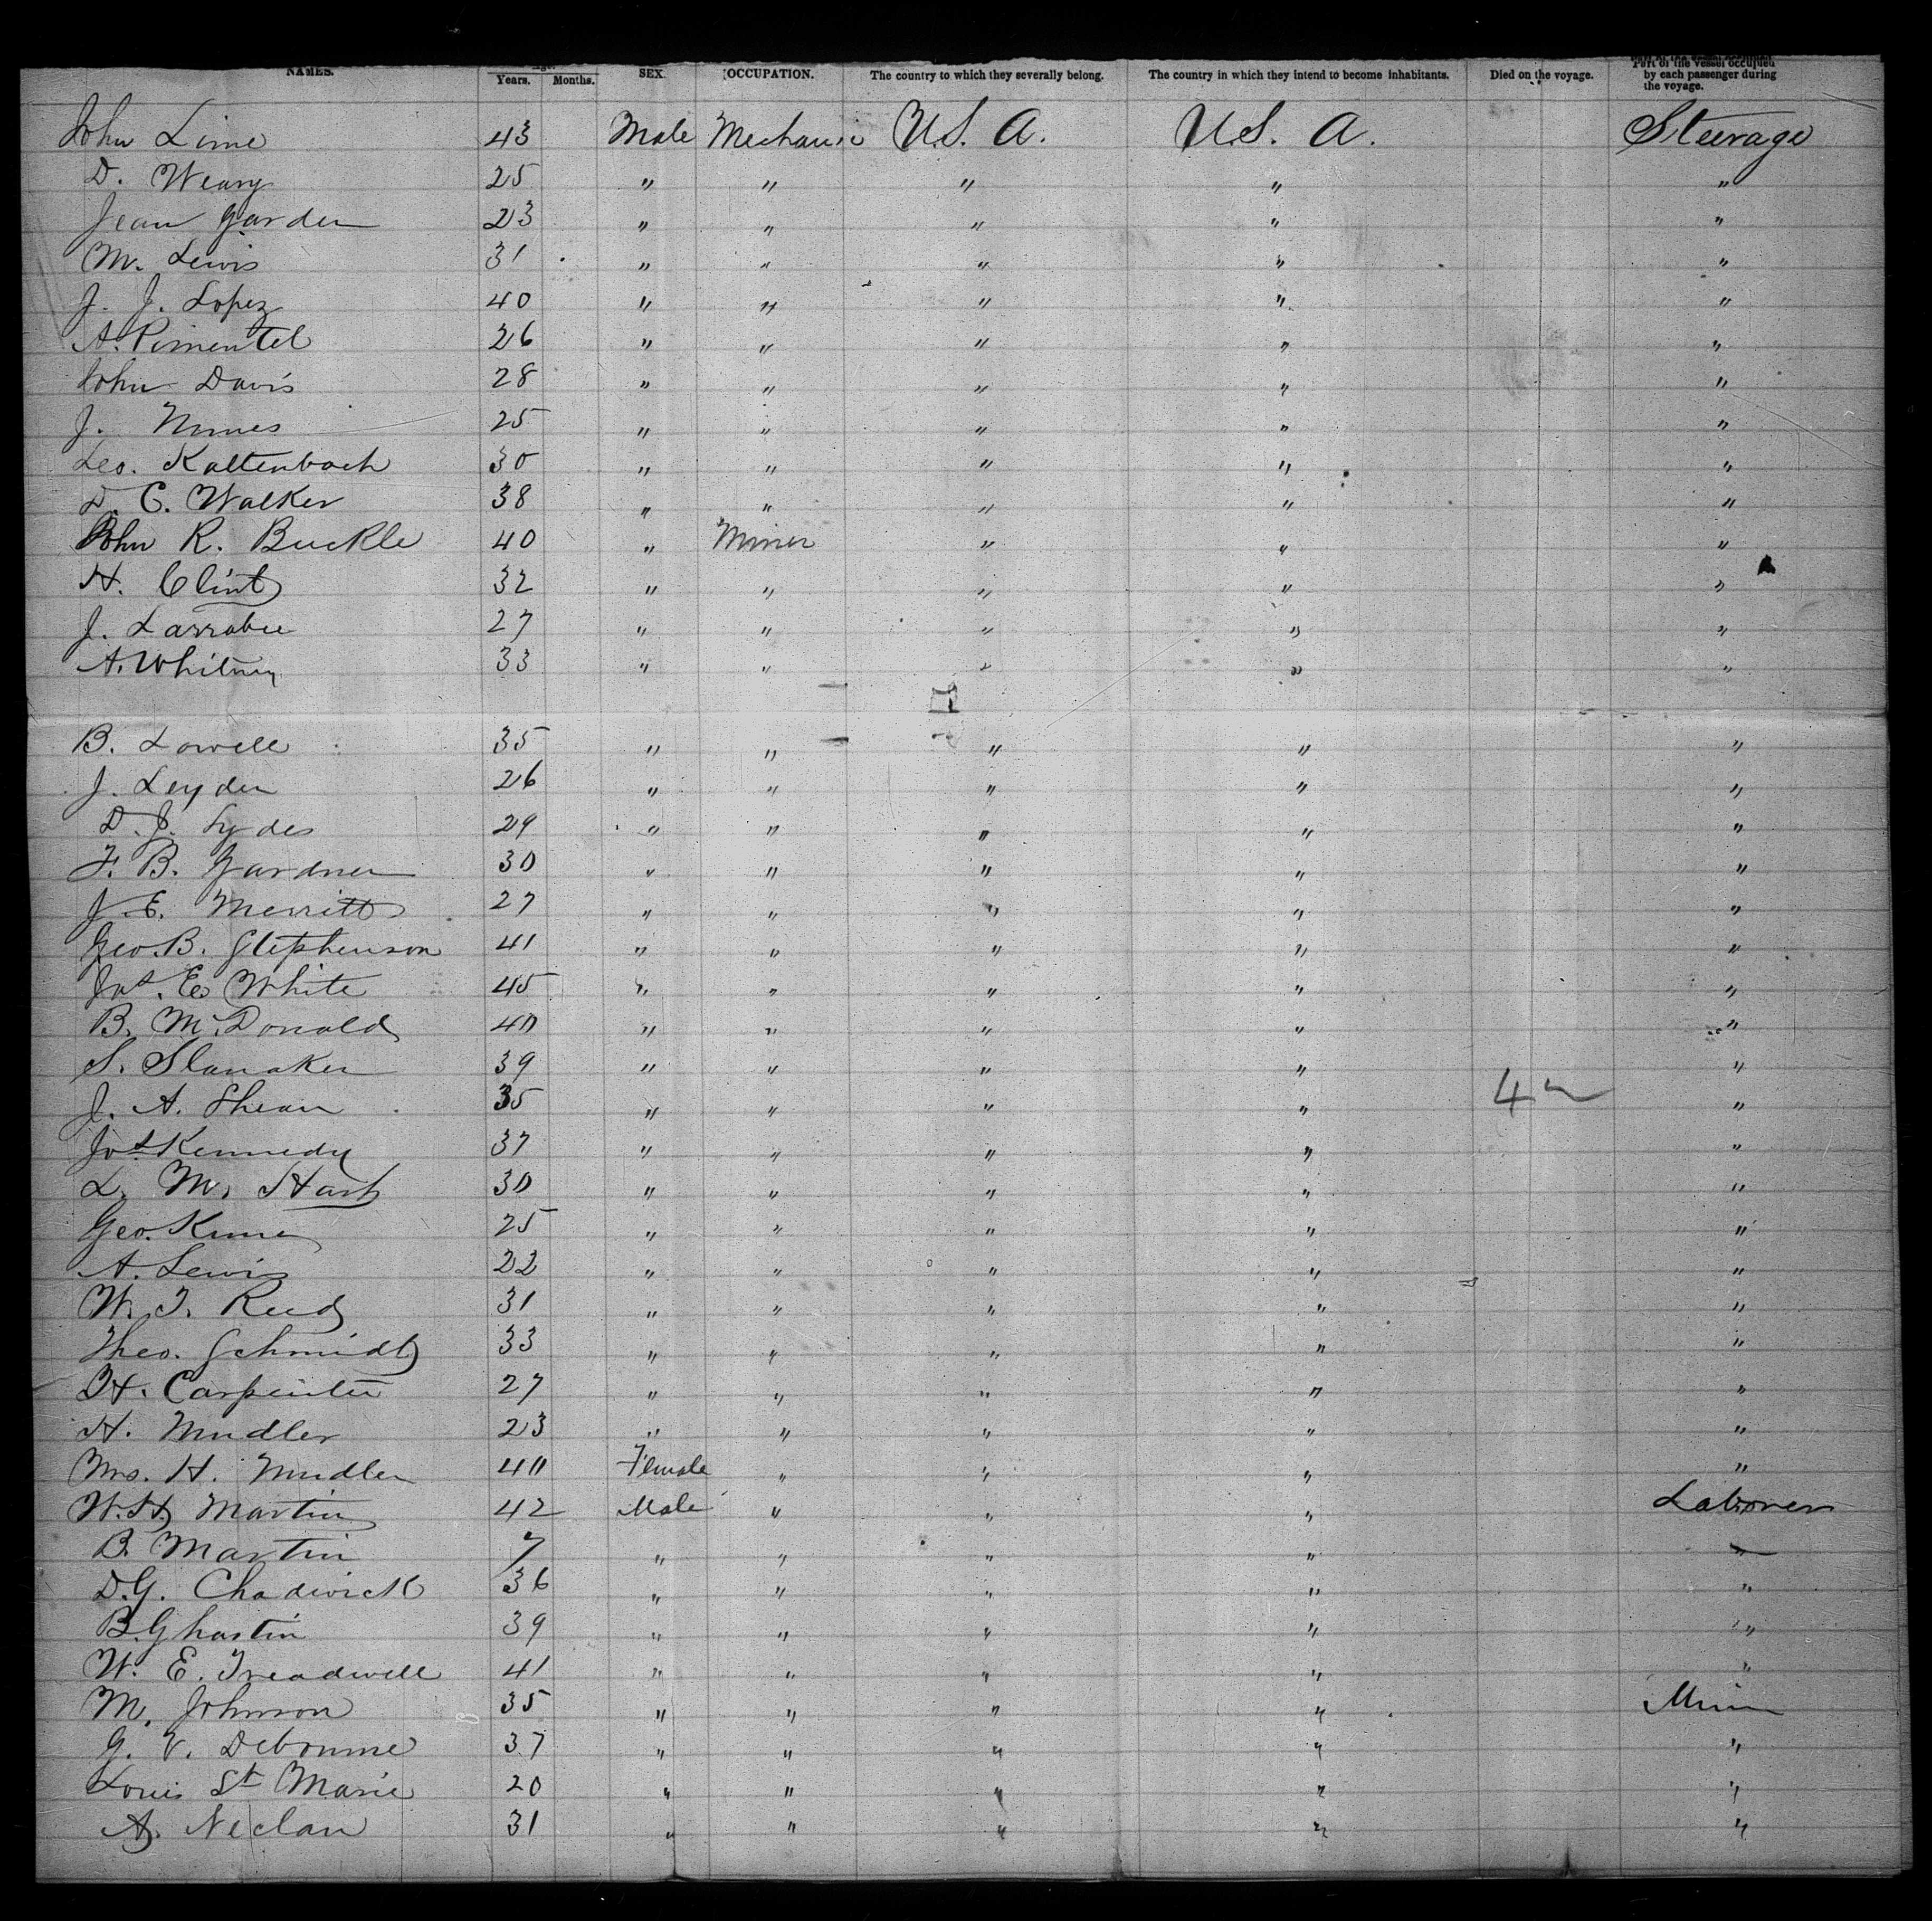 NAMES. Age. Years. Months. SEX. OCCUPATION. The country to which they severally belong. The country in which they intend to become inhabitants. Died on the voyage. Part of the vessel occupied by each passenger during the voyage.
John Lime 43 Male Mechanic U.S. A. U.S. A. Steerage
D. Weary 25 " " " " "
Jean Garden 23 " " " " "
M. Lewis 31 " " " " "
J. J. Lopez 40 " " " " "
A. Pimentel 26 " " " " "
John Davis 28 " " " " "
J. Nunes 25 " " " " "
Leo. Kaltenbach 30 " " " " "
D. C. Walker 38 " " " " "
John R. Buckle 40 " Miner " " "
H. Clint 32 " " " " "
J. Larrabee 27 " " " " "
A. Whitney 33 " " " " "
B. Lowell 35 " " " " "
J. Leyden 26 " " " " "
D. J. Lydes 29 " " " " "
F. B. Gardner 30 " " " " "
J. E. Merritt 27 " " " " "
Geo. B. Stephenson 41 " " " " "
Jas. E. White 45 " " " " "
B. McDonald 40 " " " " "
S. Slanaker 39 " " " " "
J. A. Shean 35 " " " " "
Jos Kennedy 37 " " " " "
L. M. Hart 30 " " " " "
Geo. Kune 25 " " " " "
A. Lewis 22 " " " " "
W. T. Reed 31 " " " " "
Theo. Schmidt 33 " " " " "
H. Carpenter 27 " " " " "
H. Mudler 23 " " " " "
Mrs. H. Mudler 40 Female " " " "
W. H. Martin 42 Male " " " Laborer
B. Martin 7 " " " " "
D. G. Chadwick 36 " " " " "
B. Ghastin 39 " " " " "
W. E. Treadwell 41 " " " " "
M. Johnson 35 " " " " Miner
G. V. Debonme 37 " " " " "
Louis St Marie 20 " " " " "
A. Neclan 31 " " " " "